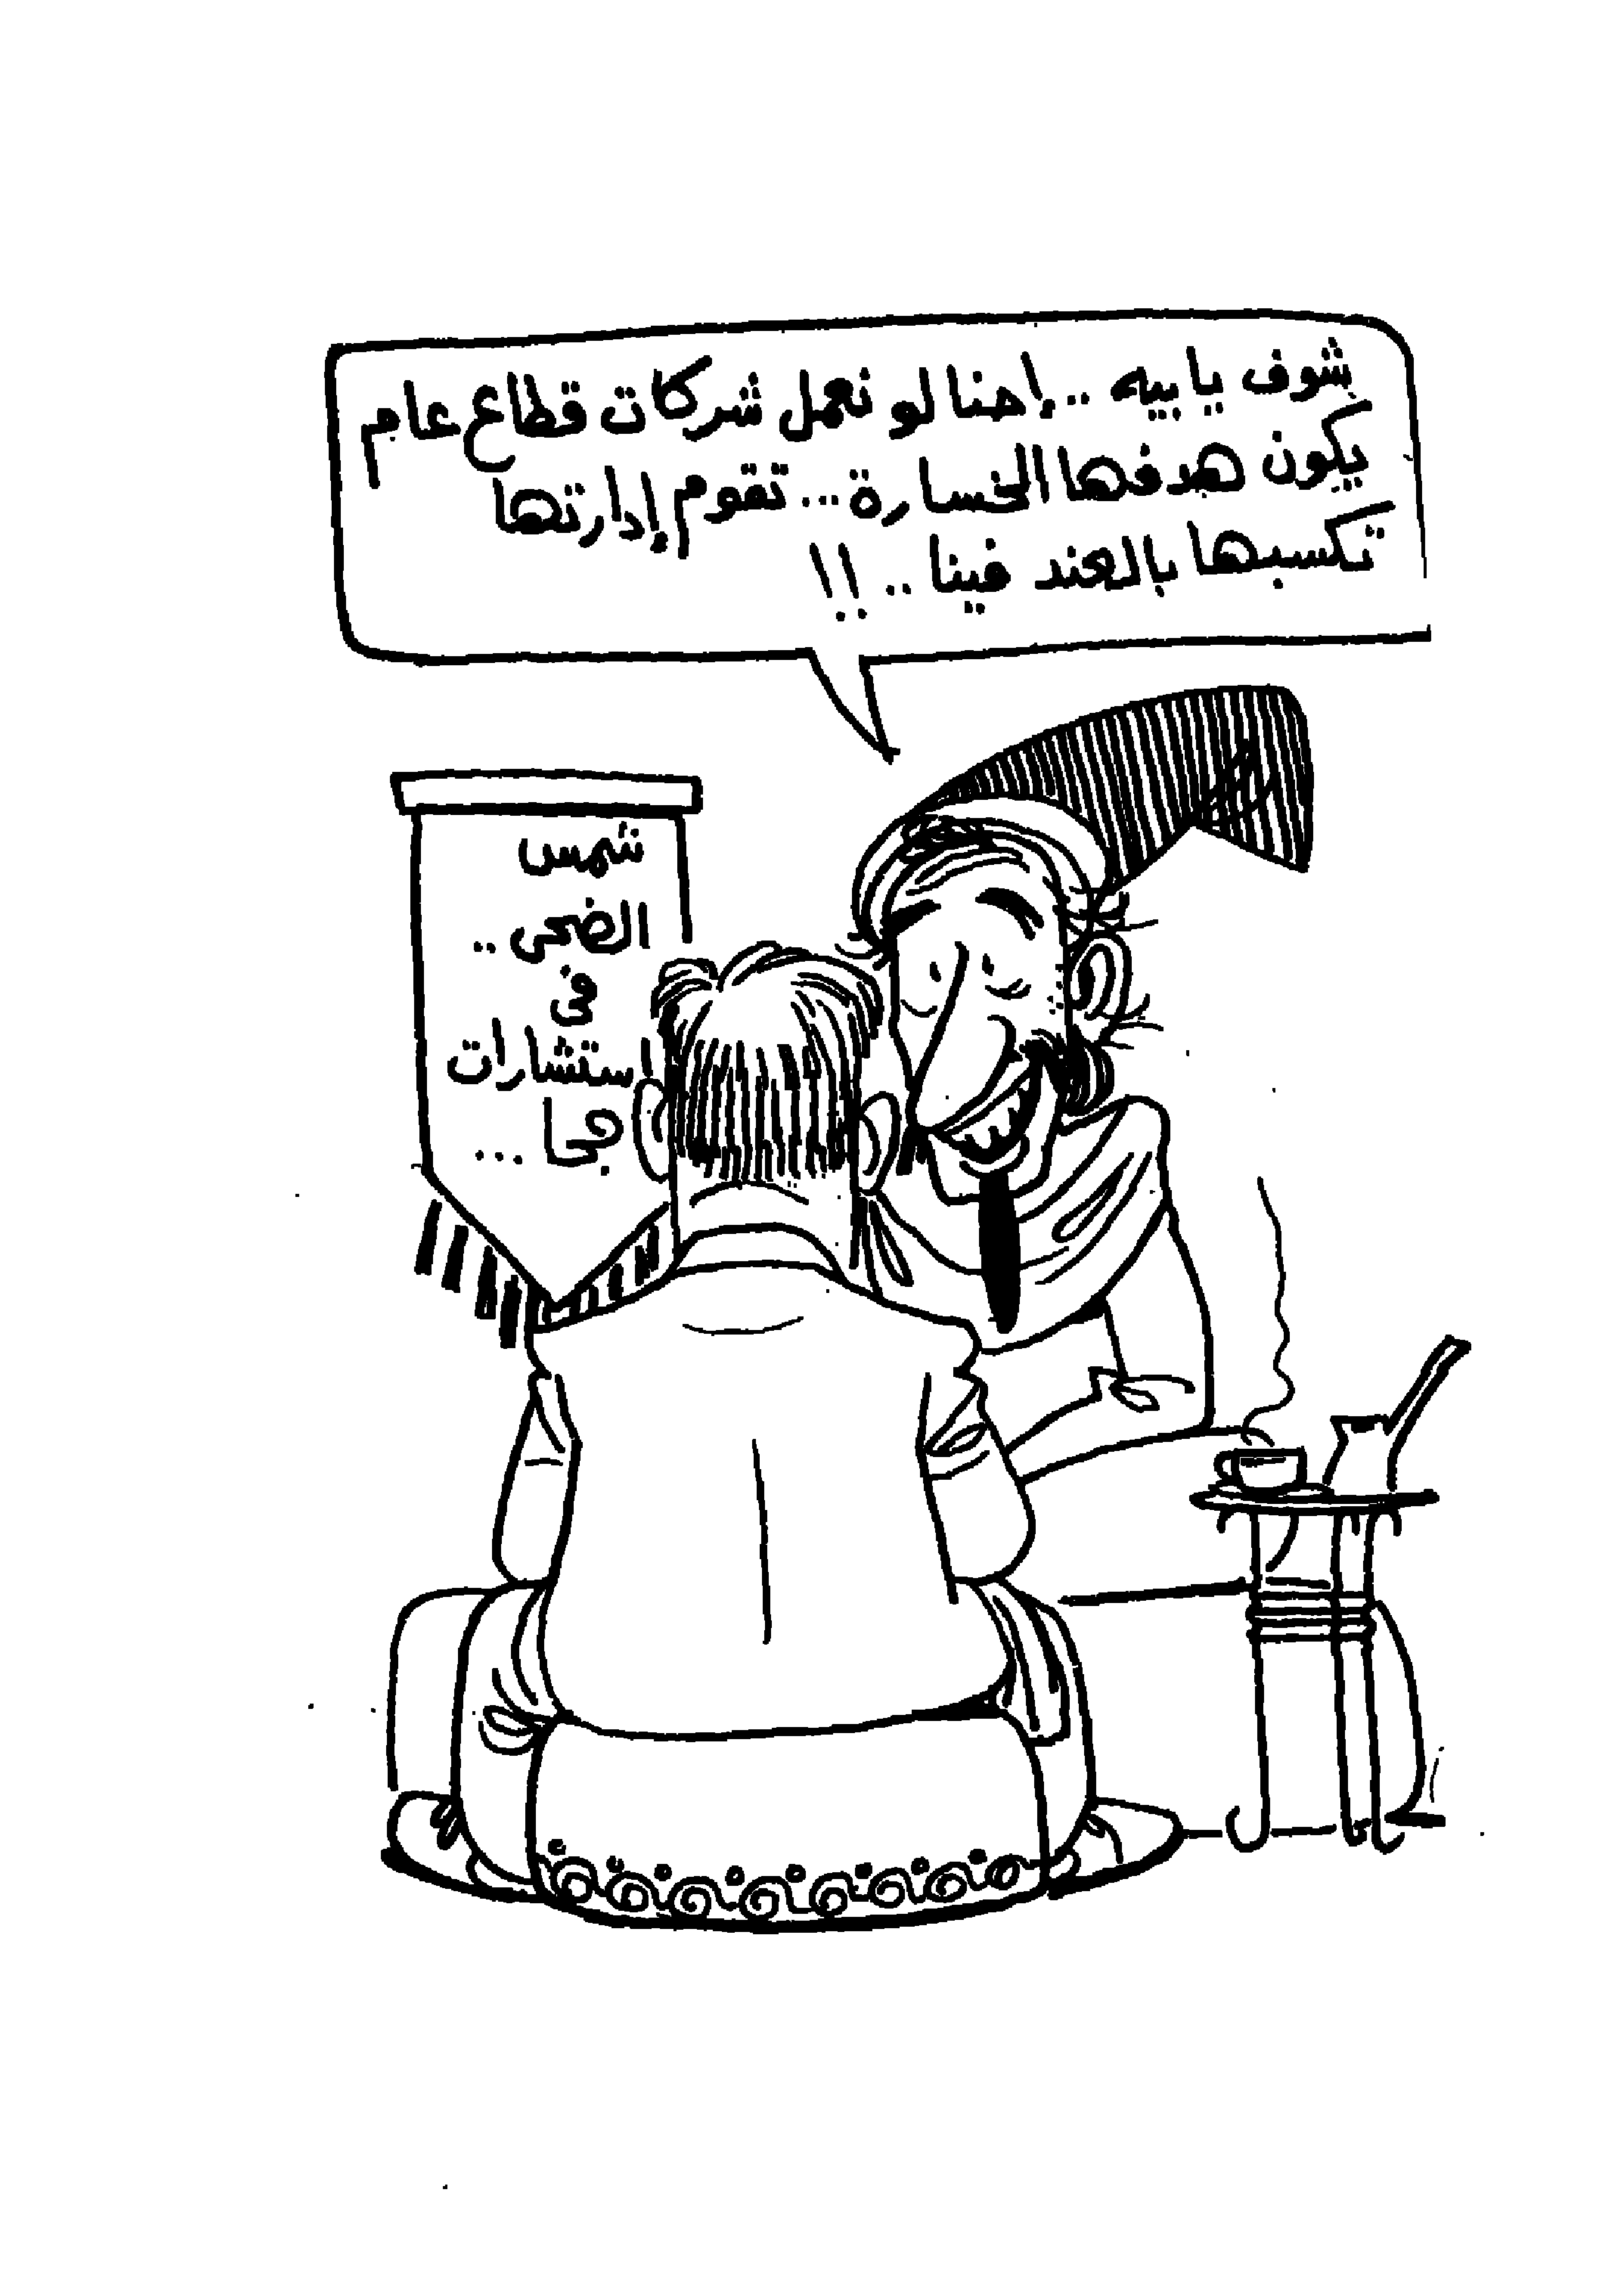 شوف يا بيه .. إحنا لو نعمل شركات قطاع عام
يكون هدفها الخسارة ... تقوم إدارتها
تكسبها بالعند فينا .. !!
شمس
الضحى ..
فى
استشارات
جحا ...